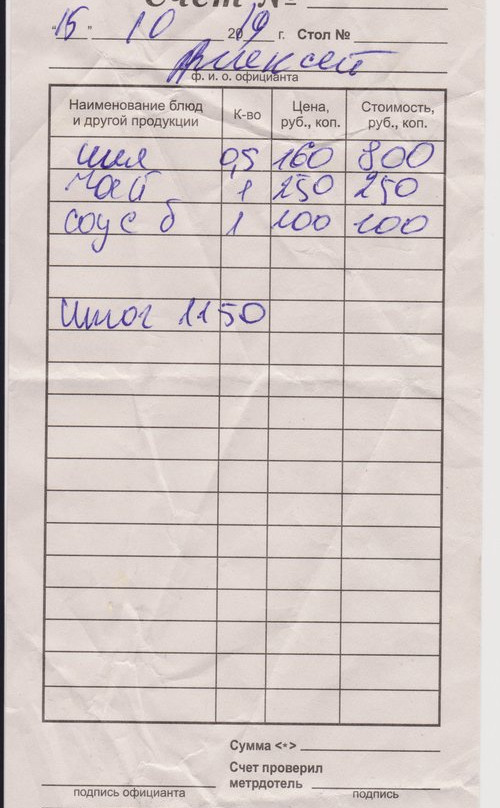 Счет №
"15" 10 2019 г. Стол №
Алексей
ф. и. о. официанта
Наименование блюд и другой продукции К-во Цена, руб., коп. Стоимость, руб., коп.
шея 0,5 160 800
чай 1 250 250
соус б 1 100 100
Итог 1150
Сумма <*>
Счет проверил
метрдотель
подпись официанта подпись